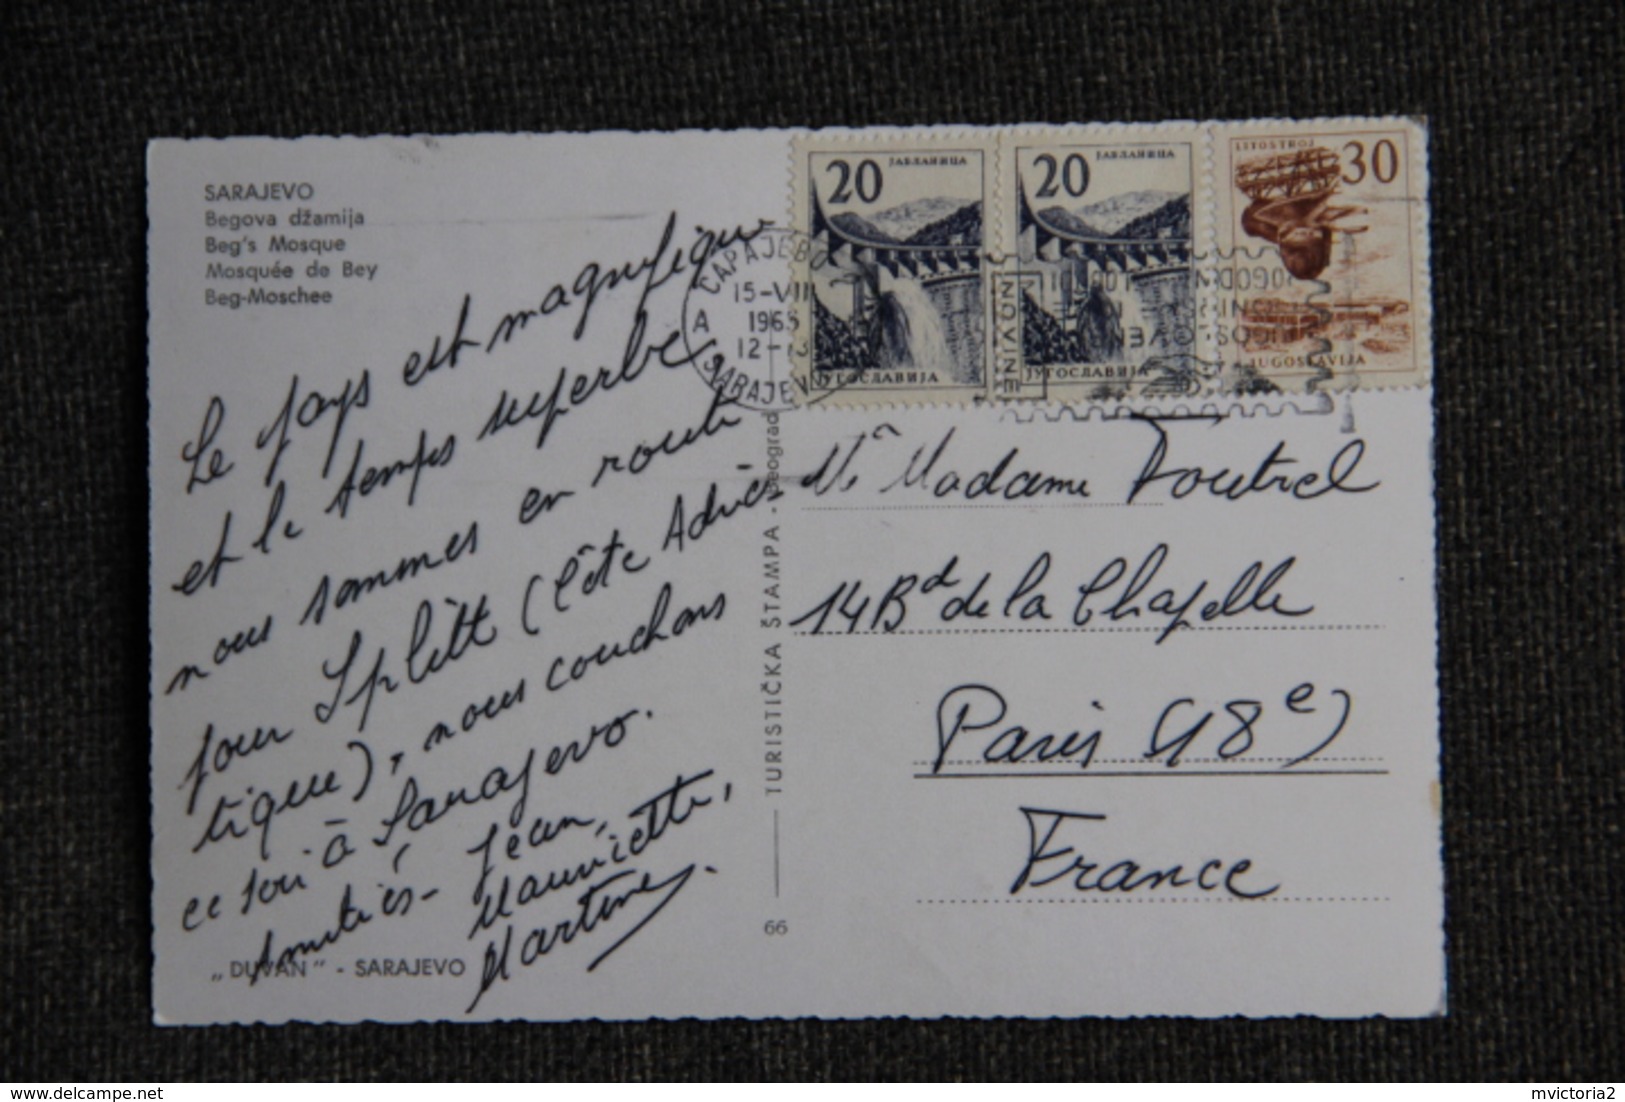 SARAJEVO
Begova džamija
Beg's Mosque
Mosquée de Bey
Beg-Moschee
Le pays est magnifique
et le temps superbe
nous sommes en route
pour Splitt (Côte Adria
tique), nous couchons
ce soir à Sarajevo.
Amitiés - Jean,
Mauricette,
Martine.
„DUVAN" - SARAJEVO
TURISTIČKA ŠTAMPA - Beograd
66
20
ЈАБЛАНИЦА
ЈУГОСЛАВИЈА
20
ЈАБЛАНИЦА
ЈУГОСЛАВИЈА
LITOSTROJ
30
JUGOSLAVIJA
САРАЈЕВО
15-VIII
A 1965
12-13
SARAJEVO
Madame Foutrel
14 Bd de la Chapelle
Paris (18e)
France
delcampe.net
mvictoria2